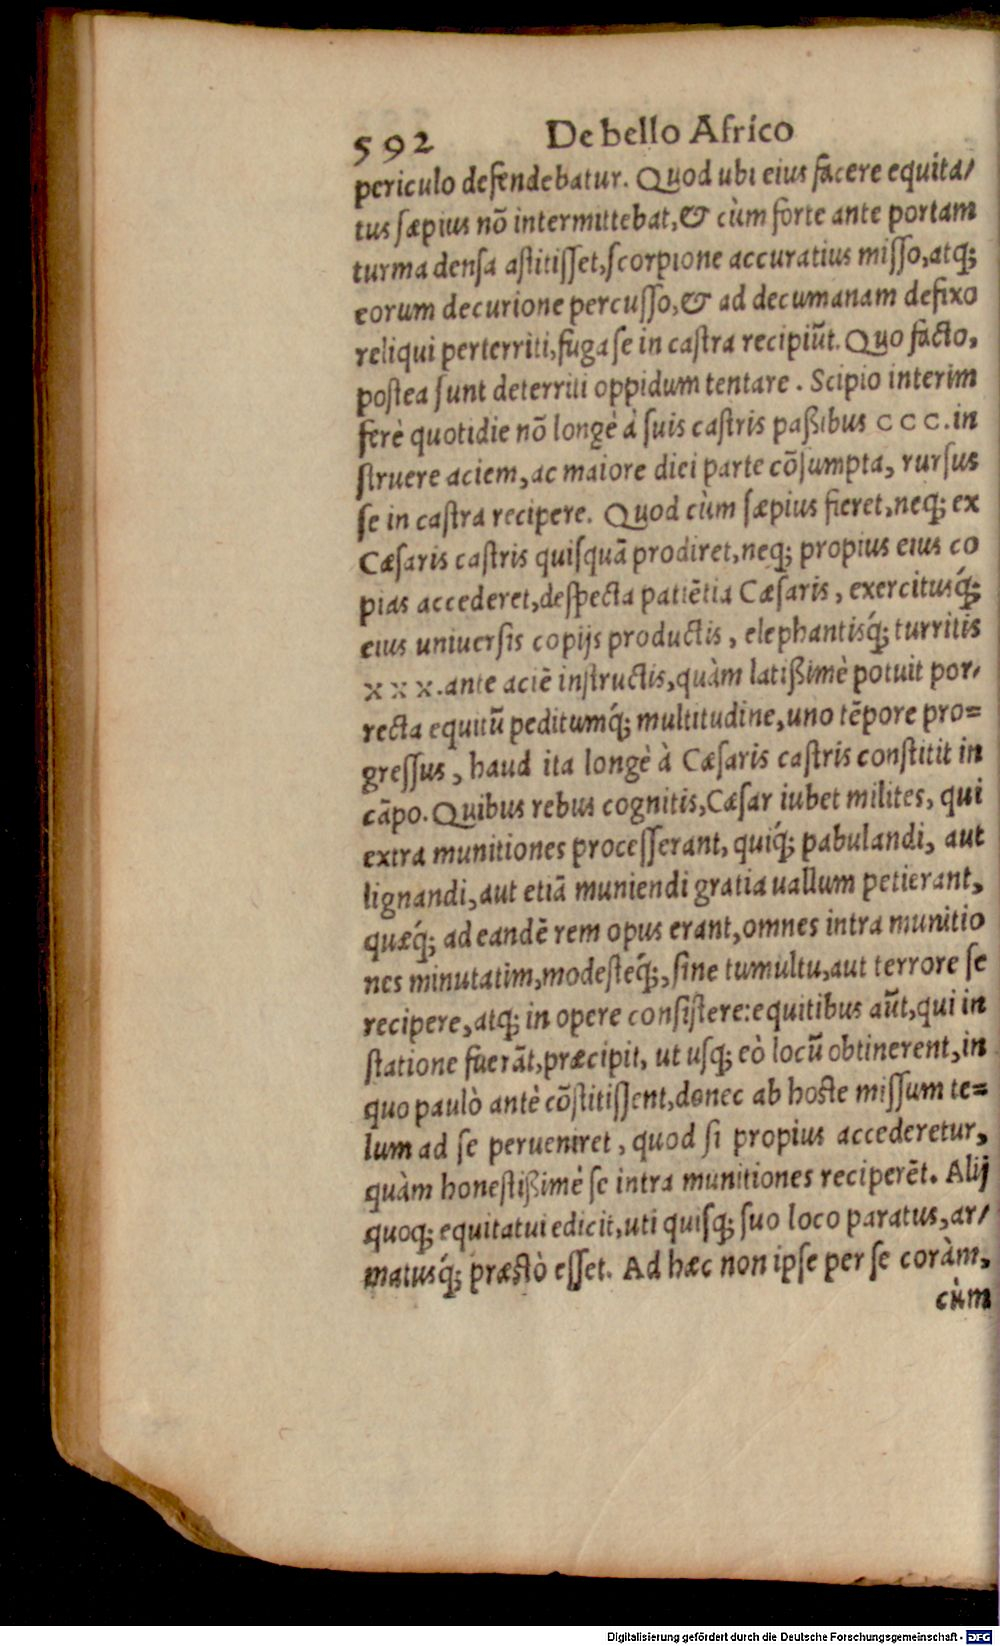 592 De bello Africo
periculo defendebatur. Quod ubi eius facere equita/
tus sæpius nõ intermittebat, & cùm forte ante portam
turma densa astitisset, scorpione accuratius misso, atq;
eorum decurione percusso, & ad decumanam defixo
reliqui perterriti, fuga se in castra recipiũt. Quo facto,
postea sunt deterriti oppidum tentare. Scipio interim
ferè quotidie nõ longè à suis castris paßibus CCC. in
struere aciem, ac maiore diei parte cõsumpta, rursus
se in castra recipere. Quod cùm sæpius fieret, neq; ex
Cæsaris castris quisquã prodiret, neq; propius eius co
pias accederet, despecta patiẽtia Cæsaris, exercitusq́;
eius uniuersis copijs productis, elephantisq́; turritis
XXX. ante aciẽ instructis, quàm latißimè potuit por/
recta equitũ peditumq́; multitudine, uno tẽpore pro=
gressus, haud ita longè à Cæsaris castris constitit in
cãpo. Quibus rebus cognitis, Cæsar iubet milites, qui
extra munitiones processerant, quiq́; pabulandi, aut
lignandi, aut etiã muniendi gratia uallum petierant,
quæq́; ad eandẽ rem opus erant, omnes intra munitio
nes minutatim, modesteq́;, sine tumultu, aut terrore se
recipere, atq; in opere consistere: equitibus aũt, qui in
statione fuerãt, præcipit, ut usq; eò locũ obtinerent, in
quo paulò antè cõstitissent, donec ab hoste missum te=
lum ad se perueniret, quod si propius accederetur,
quàm honestißimè se intra munitiones reciperẽt. Alij
quoq; equitatui edicit, uti quisq; suo loco paratus, ar/
matusq́; præstò esset. Ad hæc non ipse per se coràm,
cùm
Digitalisierung gefördert durch die Deutsche Forschungsgemeinschaft - DFG